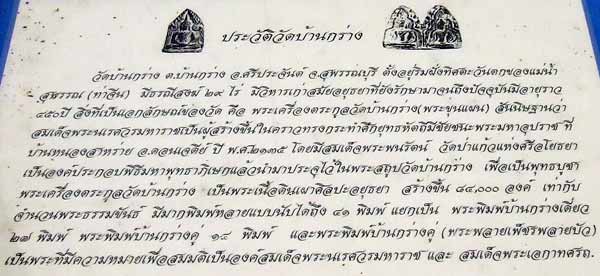 ประวัติวัดบ้านกร่าง
วัดบ้านกร่าง ต.บ้านกร่าง อ.ศรีประจันต์ จ.สุพรรณบุรี ตั้งอยู่ริมฝั่งทิศตะวันตกของแม่น้ำ
สุพรรณ (ท่าจีน) มีธรณีสงฆ์ ๒๙ ไร่ มีวิหารเก่าสมัยอยุธยาที่ยังรักษามาจนถึงปัจจุบันมีอายุราว
๔๕๐ปี สิ่งที่เป็นเอกลักษณ์ของวัด คือ พระเครื่องตระกูลวัดบ้านกร่าง(พระขุนแผน) สันนิษฐานว่า
สมเด็จพระนเรศวรมหาราชเป็นผู้สร้างขึ้นในคราวทรงกระทำศึกยุทธหัตถีมีชัยชนะพระมหาอุปราช ที่
บ้านหนองสาหร่าย อ.ดอนเจดีย์ ปี พ.ศ.๒๑๓๕ โดยมีสมเด็จพระพนรัตน์ วัดป่าแก้วแห่งศรีอโยธยา
เป็นองค์ประกอบพิธีมหาพุทธาภิเษกแล้วนำมาประจุไว้ในพระสถูปวัดบ้านกร่าง เพื่อเป็นพุทธบูชา
พระเครื่องตระกูลวัดบ้านกร่าง เป็นพระเนื้อดินเผาศิลปะอยุธยา สร้างขึ้น ๘๔,๐๐๐ องค์ เท่ากับ
จำนวนพระธรรมขันธ์ มีมากพิมพ์หลายแบบนับได้ถึง ๔๑ พิมพ์ แยกเป็น พระพิมพ์บ้านกร่างเดี่ยว
๒๗ พิมพ์ พระพิมพ์บ้านกร่างคู่ ๑๔ พิมพ์ และพระพิมพ์บ้านกร่างคู่ (พระพลายเพ็ชรพลายบัว)
เป็นพระที่มีความหมายเพื่อสมมติเป็นองค์สมเด็จพระนเรศวรมหาราช และ สมเด็จพระเอกาทศรถ.